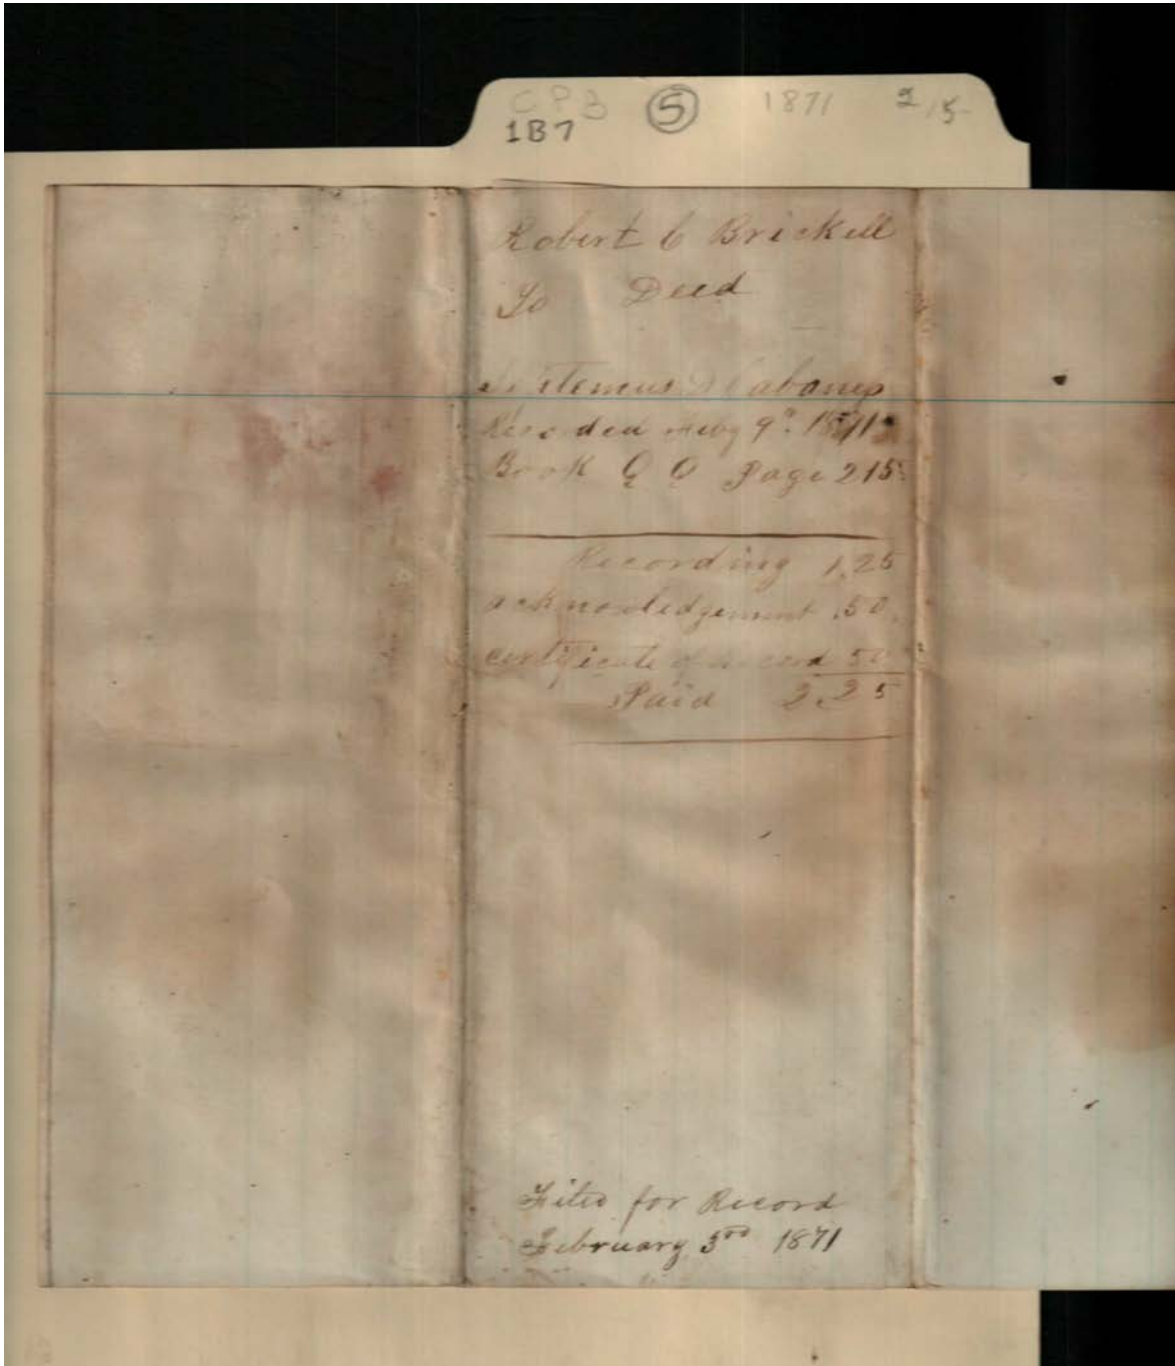 CPB
1B7
5
1871
2/5-
Robert C Brickell
To Deed
Septemus D Cabaniss
Recorded Feby 9th 1871
Book Q Q Page 215
Recording 1.25
acknowledgement .50
certificate of record 50
Paid 2.25
Filed for Record
February 3rd 1871